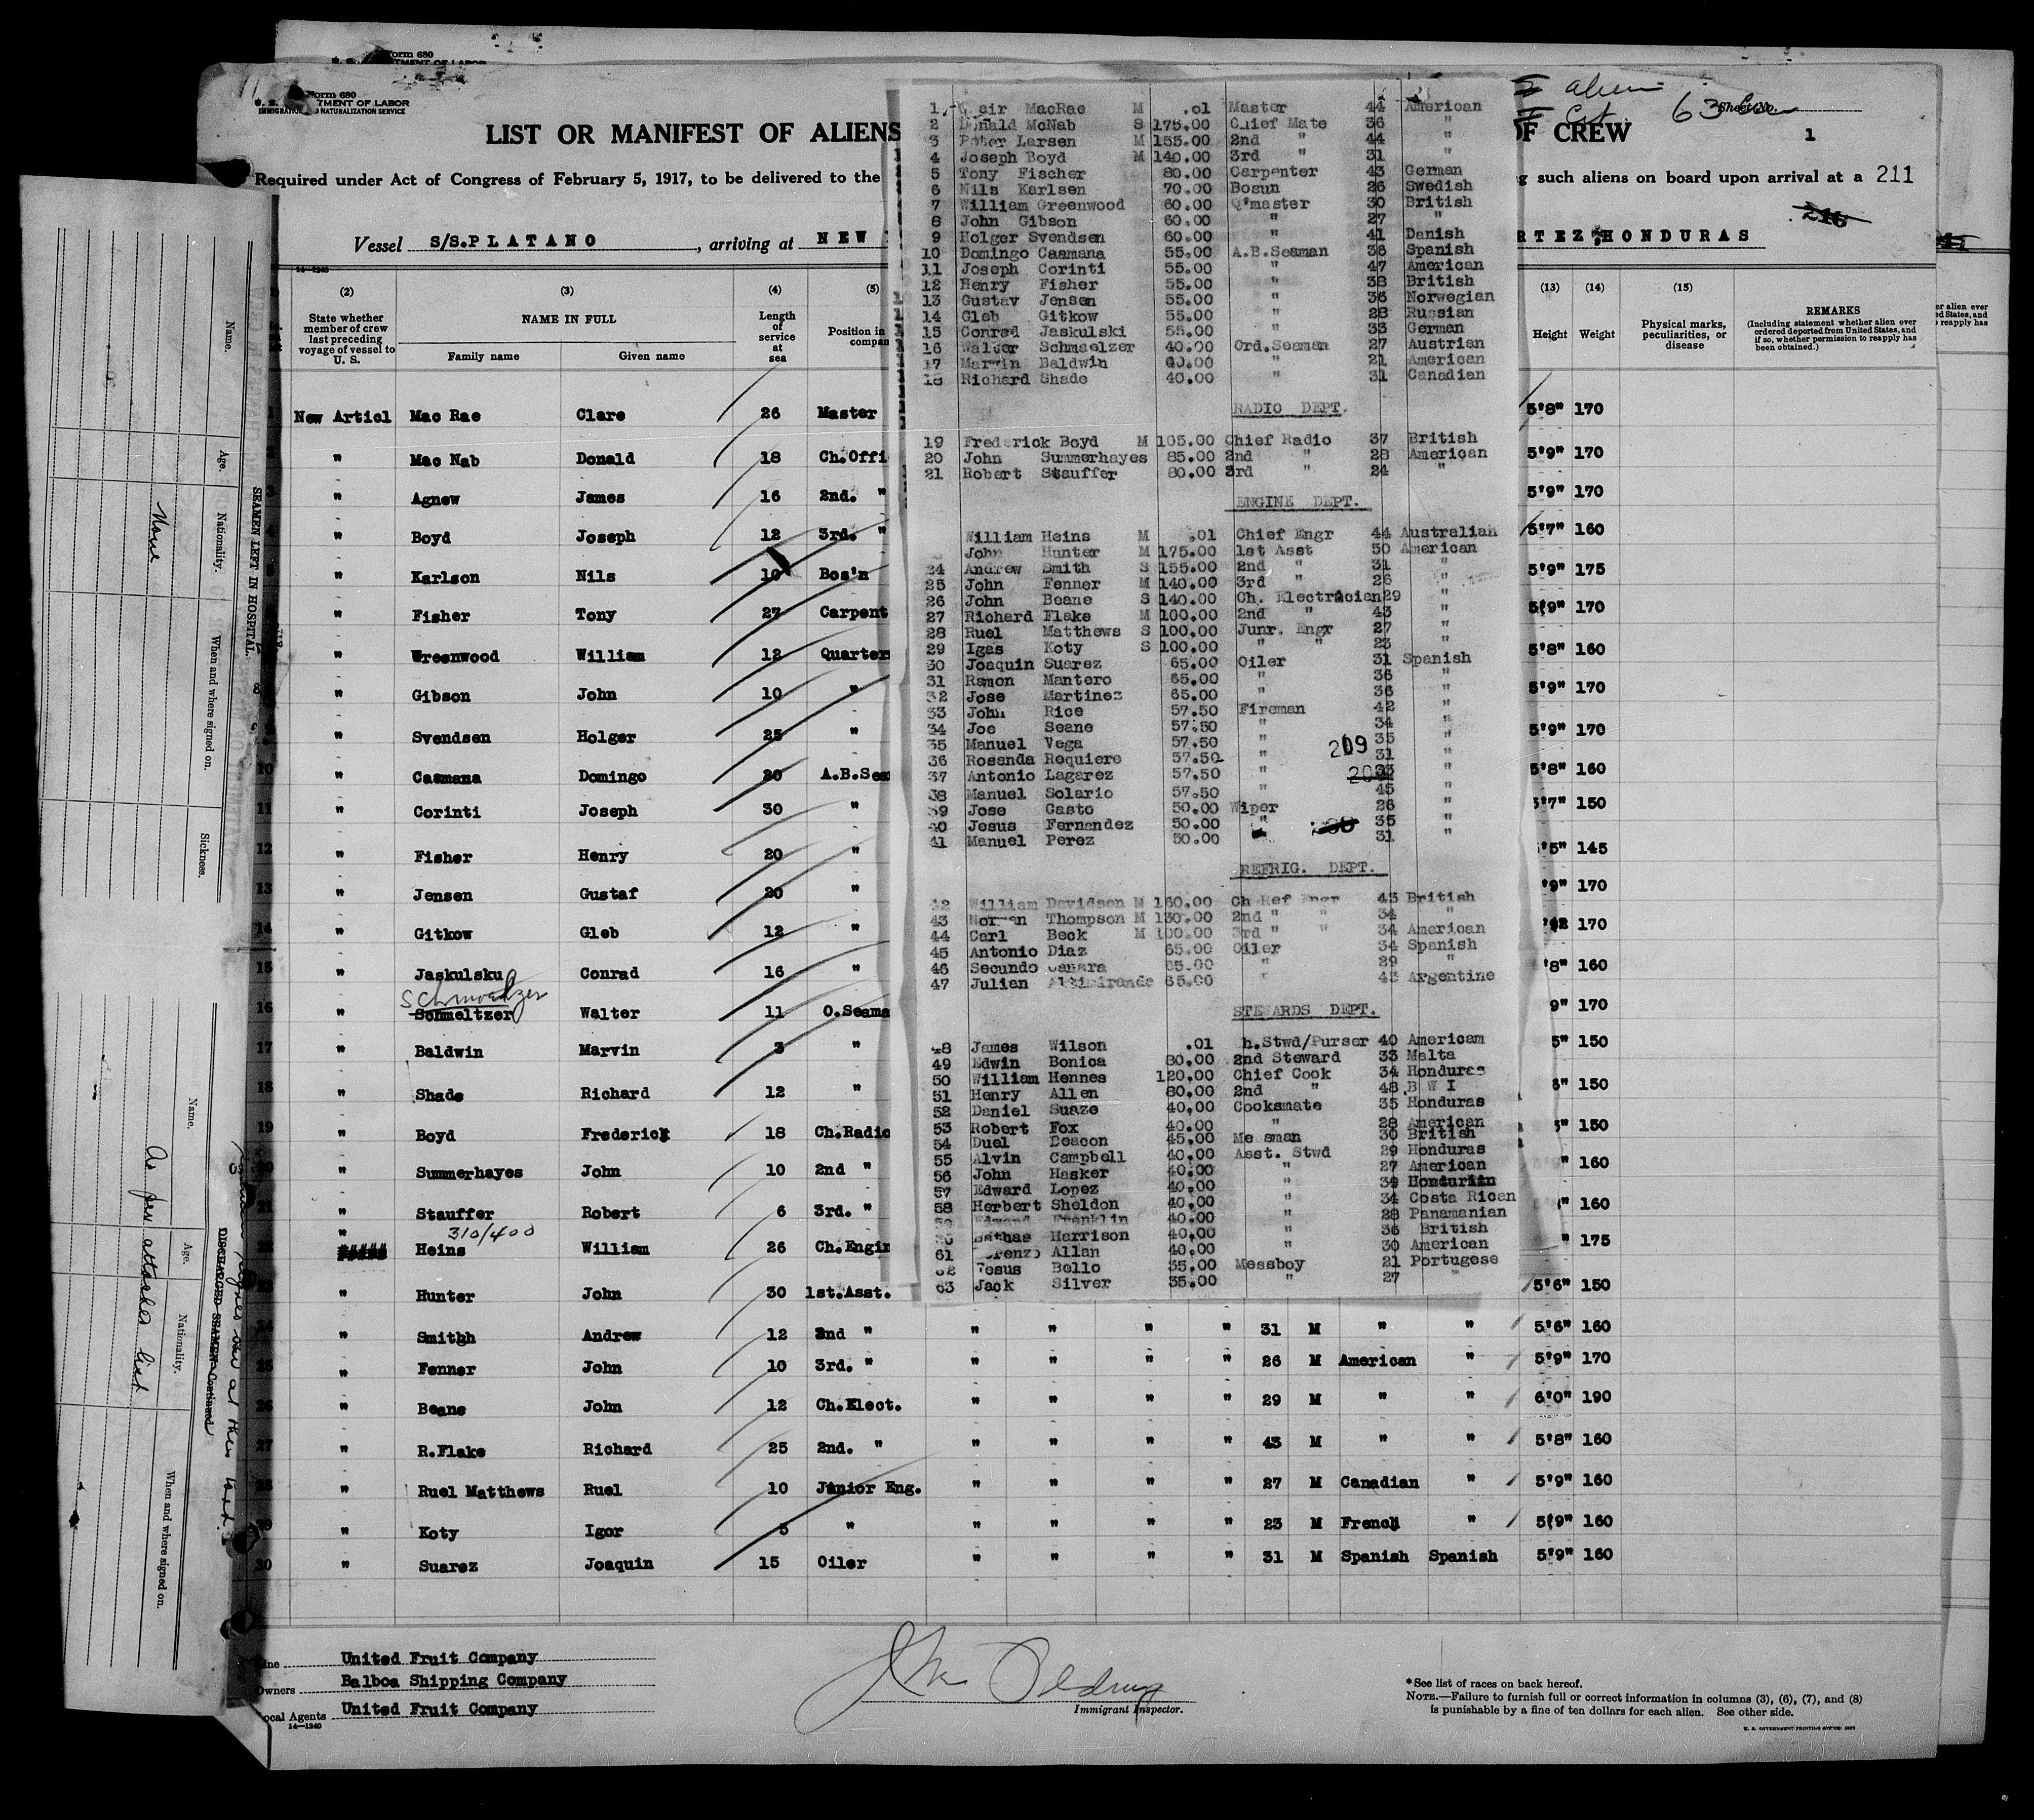 Form 680
TMENT OF LABOR
Form 680
U. S. TMENT OF LABOR
IMMIGRATION NATURALIZATION SERVICE
LIST OR MANIFEST OF ALIENS
OF CREW
Sheet No.
1
alien
63
Required under Act of Congress of February 5, 1917, to be delivered to the
such aliens on board upon arrival at a 211
Vessel S/S.PLATANO, arriving at NEW
RTEZ, HONDURAS
14-1240
(2) (3) (4) (5)
State whether member of crew last preceding voyage of vessel to U. S.
NAME IN FULL
Family name Given name
Length of service at sea
Position in
compan
(13) (14) (15)
Height Weight Physical marks, peculiarities, or disease
REMARKS
(Including statement whether alien ever ordered deported from United States, and if so, whether permission to reapply has been obtained.)
1 New Articl Mac Rae Clare 26 Master 5'8" 170
" Mac Nab Donald 18 Ch.Offi 5'9" 170
3 " Agnew James 16 2nd. " 5'9" 170
4 " Boyd Joseph 12 3rd. " 5'7" 160
" Karlson Nils 10 Bos'n 5'9" 175
" Fisher Tony 27 Carpent 5'9" 170
" Greenwood William 12 Quarter 5'8" 160
8 " Gibson John 10 " 5'9" 170
" Svendsen Holger 25 " 5'9" 170
10 " Caamana Domingo 20 A.B.Sea 5'8" 160
11 " Corinti Joseph 30 " 5'7" 150
12 " Fisher Henry 20 " '5" 145
13 " Jensen Gustaf 20 " '9" 170
14 " Gitkow Gleb 12 " 170
15 " Jaskulsku Conrad 16 " '8" 160
Schmoelzer
16 " Schmeltzer Walter 11 O.Seama 9" 170
17 " Baldwin Marvin 3 " 5" 150
18 " Shade Richard 12 " 150
19 " Boyd Frederick 18 Ch.Radio 150
20 " Summerhayes John 10 2nd " 160
21 " Stauffer Robert 6 3rd. " 160
310/400
22 " Heins William 26 Ch.Engin 175
23 " Hunter John 30 1st.Asst. 5'6" 150
24 " Smithh Andrew 12 2nd " " " " " 31 M " " 5'6" 160
25 " Fenner John 10 3rd. " " " " " 26 M American " 5'9" 170
26 " Beane John 12 Ch.Elect. " " " " 29 M " " 6'0" 190
27 " R.Flake Richard 25 2nd. " " " " " 43 M " " 5'8" 160
28 " Ruel Matthews Ruel 10 Junior Eng. " " " " 27 M Canadian " 5'9" 160
29 " Koty Igor 5 " " " " " 23 M French " 5'9" 160
30 " Suarez Joaquin 15 Oiler " " " " 31 M Spanish Spanish 5'9" 160
1 MacRae M .01 Master 44 American
2 Donald McNab S 175.00 Chief Mate 36 "
3 Peter Larsen M 155.00 2nd " 44 "
4 Joseph Boyd M 140.00 3rd " 31 "
5 Tony Fischer 80.00 Carpenter 43 German
6 Nils Karlsen 70.00 Bosun 26 Swedish
7 William Greenwood 60.00 Q'master 30 British
8 John Gibson 60.00 " 27 "
9 Holger Svendsen 60.00 " 41 Danish
10 Domingo Caamana 55.00 A.B.Seaman 36 Spanish
11 Joseph Corinti 55.00 " 47 American
12 Henry Fisher 55.00 " 38 British
13 Gustav Jensen 55.00 " 36 Norwegian
14 Gleb Gitkow 55.00 " 28 Russian
15 Conrad Jaskulski 55.00 " 33 German
16 Walter Schmaelzer 40.00 Ord.Seaman 27 Austrian
17 Marvin Baldwin 40.00 " 21 American
18 Richard Shade 40.00 " 31 Canadian
RADIO DEPT.
19 Frederick Boyd M 105.00 Chief Radio 37 British
20 John Summerhayes 85.00 2nd " 28 American
21 Robert Stauffer 80.00 3rd " 24 "
ENGINE DEPT.
William Heins M .01 Chief Engr 44 Australian
John Hunter M 175.00 1st Asst 50 American
24 Andrew Smith S 155.00 2nd " 31 "
25 John Fenner M 140.00 3rd " 26 "
26 John Beane S 140.00 Ch. Electrician 29 "
27 Richard Flake M 100.00 2nd " 43 "
28 Ruel Matthews S 100.00 Junr. Engr 27 "
29 Igas Koty S 100.00 " " 23 "
30 Joaquin Suarez 65.00 Oiler 31 Spanish
31 Ramon Mantero 65.00 " 36 "
32 Jose Martinez 65.00 " 36 "
33 John Rice 57.50 Fireman 42 "
34 Joe Seane 57.50 " 34 "
35 Manuel Vega 57.50 " 35 "
209
36 Rosenda Requiere 57.50 " 31 "
37 Antonio Lagarez 57.50 " "
38 Manuel Solario 57.50 " 45 "
39 Jose Casto 50.00 Wiper 26 "
40 Jesus Fernandez 50.00 " 35 "
41 Manuel Perez 50.00 31 "
REFRIG. DEPT.
42 William Davidson M 160.00 Ch Ref Engr 43 British
43 Norman Thompson M 130.00 2nd " " 34 "
44 Carl Beck M 100.00 3rd " " 34 American
45 Antonio Diaz 65.00 Oiler 34 Spanish
46 Secundo 65.00 " 29 "
47 Julian 65.00 " 43 Argentine
STEWARDS DEPT.
48 James Wilson .01 h.Stwd/Purser 40 American
49 Edwin Bonica 80.00 2nd Steward 33 Malta
50 William Hennes 120.00 Chief Cook 34 Honduras
51 Henry Allen 80.00 2nd " 48 B W I
52 Daniel Suazo 40.00 Cooksmate 35 Honduras
53 Robert Fox 40.00 " 28 American
54 Duel Deacon 45.00 Messman 30 British
55 Alvin Campbell 40.00 Asst. Stwd 29 Honduras
56 John Hasker 40.00 " 27 American
57 Edward Lopez 40.00 " 34
58 Herbert Sheldon 40.00 " 34 Costa Rican
Edward Franklin 40.00 " 28 Panamanian
Harrison 40.00 " 36 British
61 Lorenzo Allan 40.00 " 30 American
62 Jesus Bello 35.00 Messboy 21 Portugese
63 Jack Silver 35.00 " 27 "
Line United Fruit Company
Owners Balboa Shipping Company
Local Agents United Fruit Company
14-1240
Immigrant Inspector.
*See list of races on back hereof.
NOTE.—Failure to furnish full or correct information in columns (3), (6), (7), and (8)
is punishable by a fine of ten dollars for each alien. See other side.
SEAMEN LEFT IN HOSPITAL
Name. Age. Nationality. When and where signed on. Sickness.
None
DISCHARGED SEAMEN—Continued
Name. Age. Nationality. When and where signed on.
As per attached list